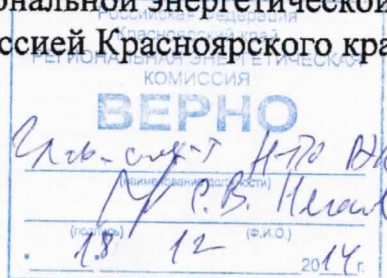 ональной энергетической
ссией Красноярского кра
Российская Федерация
Красноярский край
РЕГИОНАЛЬНАЯ ЭНЕРГЕТИЧЕСКАЯ
КОМИССИЯ
ВЕРНО
(наименование должности)
С.В.
(подпись) (Ф.И.О.)
18 12 2014 г.